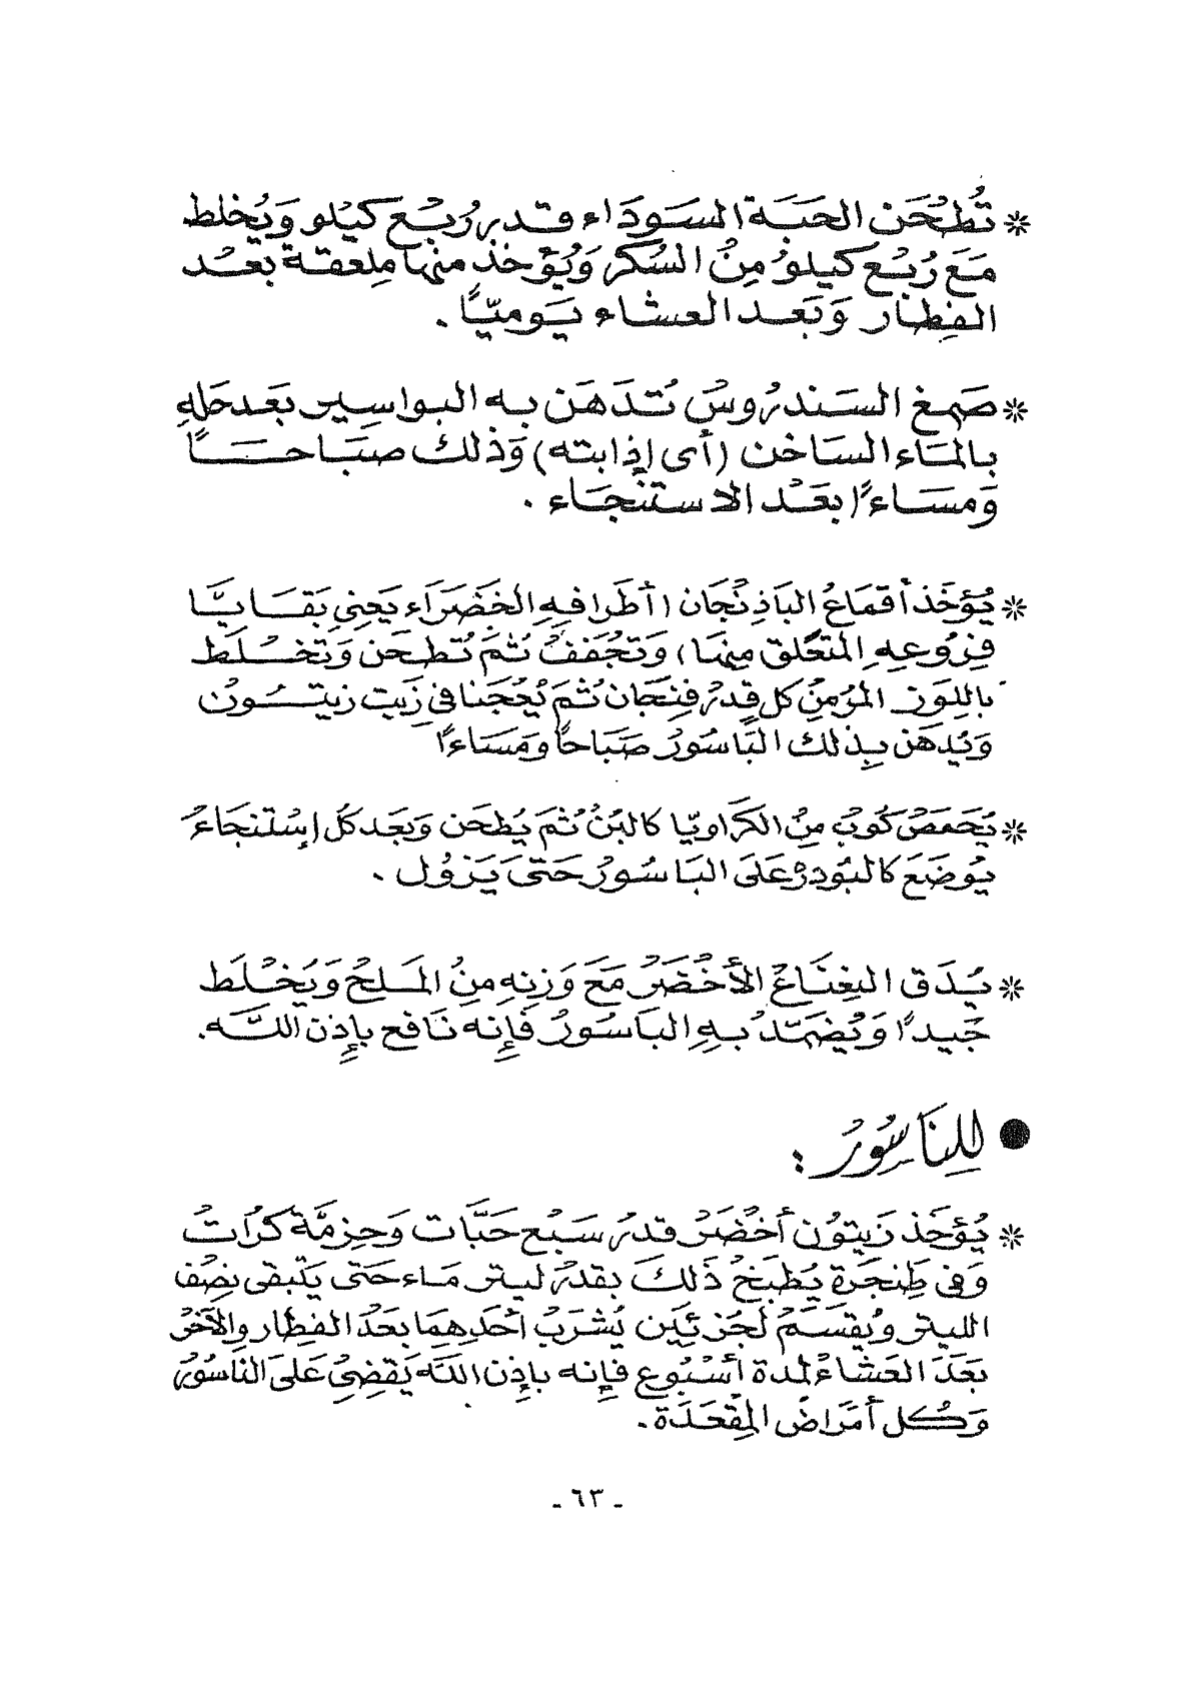 * تُطْحَن الحَبَة السَودَاء قدر رُبْع كَيْلو وَيُخْلط
مَعَ رُبْع كَيلوُ مِنُ السُكَر وَيُؤخَذُ منها مِلعقة بَعْد
الفِطار وَبَعد العشاء يَوميّاً .
* صَمغ السَندرُوسُ تُدَهَن به البواسِير بَعد حَلهِ
بالمَاء السَاخن (أى إذابته) وَذلك صبَاحَاً
وَمسَاءً ا بعَدْ الاستنْجَاء .
* يُؤخَذ أقمَاعُ البَاذِنْجَان (أطَرافهِ الخَضَرَاء يَعِنىِ بَقَايَّا
فِرُوعِهِ المتعَلق مِنهَا) وَتجُفَفُ ثُمَ تُطحَن وَتخْلَط
باللِوَز المرُ مِنْ كل قِدرُ فنِجَان ثُمَ يُعْجَنا فىِ زَيت زيتُون
وَيُدهَن بِذلك البَاسُورُ صَبَاحاً ومَسَاءً ا
* يُحَمَصُ كوُبُ مِنُ الكَرَاويّا كالبُنْ ثُمَ يُطحَن وَبَعَد كلُ إسْتنجَاءُ
يوُضَعَ كالبُودرةْ عَلىَ البَاسُورُ حَتىَ يَزوُل .
* يُدَق النِعْنَاعُ الأخُضَرُ مَعَ وَزنِهِ مِنُ المَلحُ وَيَخْلَط
جَيداً وَيُضَمّدُ بِهِ البَاسُورُ فَإنِه نَافع بإذِن اللَّه.
● لِلنَاسُورُ :
* يُؤخَذ زَيتوُن أخُضَرُ قدرُ سَبْع حَبَّات وَحِزمَّة كرُاتُ
وَفى طِنجَرَة يُطبَخُ ذَلكَ بقَدرُ ليتر مَاء حَتى يَتبقى نصْف
الليتر ويُقسَمُ لجُزئَين يُشرَبُ أحَدهِمَا بعَدُ الفطِار والآخرُ
بعَدَ العَشاءُ لمدة أسْبُوع فإنِه بإذِن اللَّه يَقضِىُ عَلىَ النَاسُورُ
وَكُل أمَرَاضُ المِقْعَدَة.
- ٦٣ -